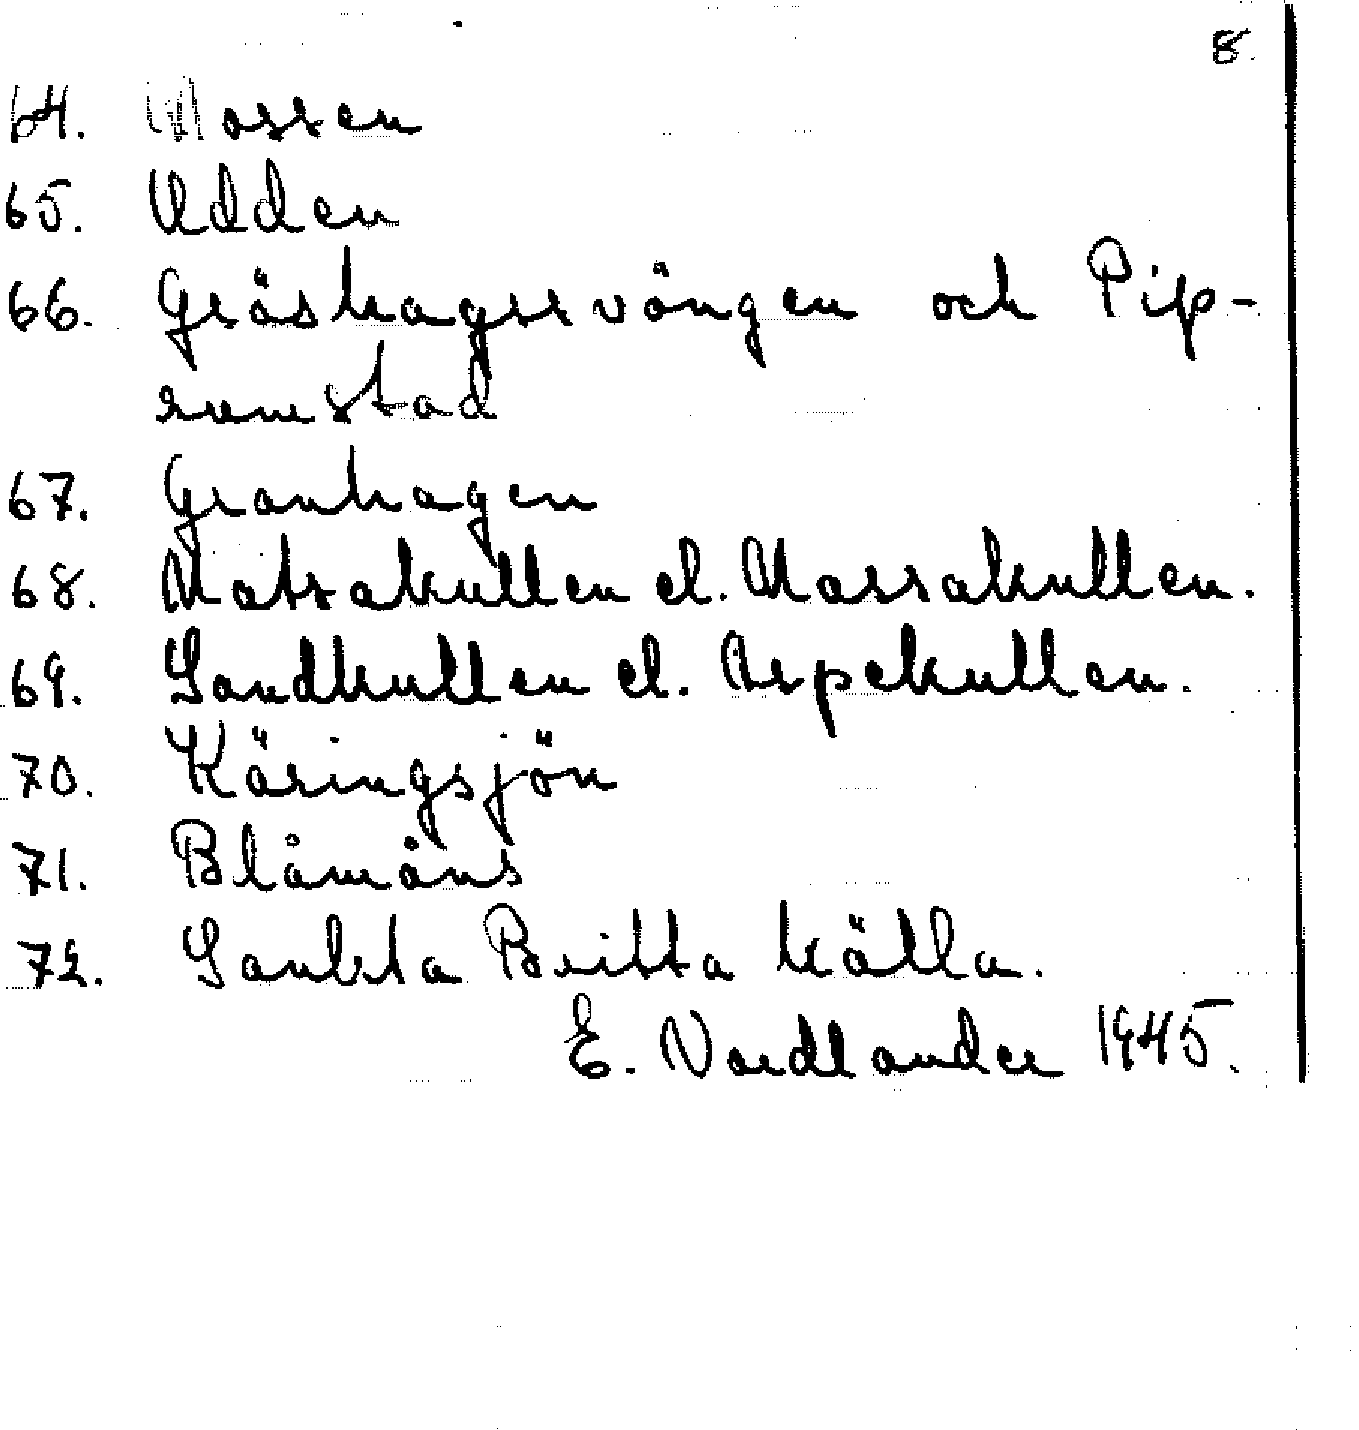 8.
64. Mossen
65. Udden
66. Gräshagssvängen och Pip-
rumstad
67. Granhagen
68. Matsakullen el. Massakullen.
69. Sandkullen el. Aspekullen.
70. Käringsjön
71. Blåmåns
72. Sankta Britta källa.
E. Nordlander 1945.